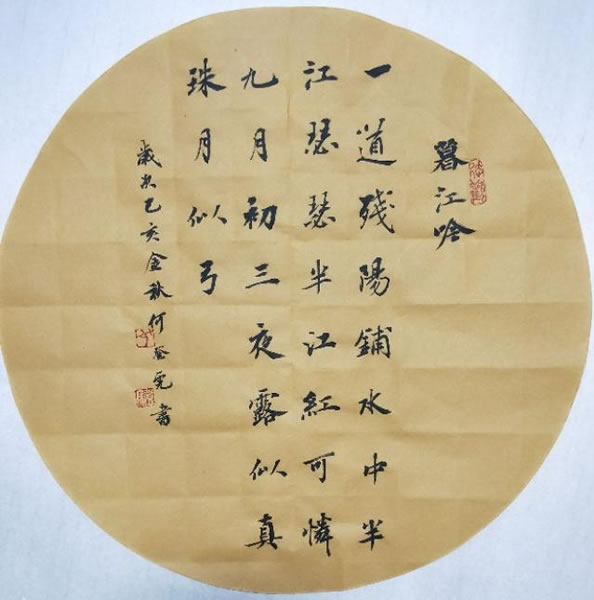 暮江吟
一道残陽鋪水中半
江瑟瑟半江紅可憐
九月初三夜露似真
珠月似弓
歲次己亥金秋何書